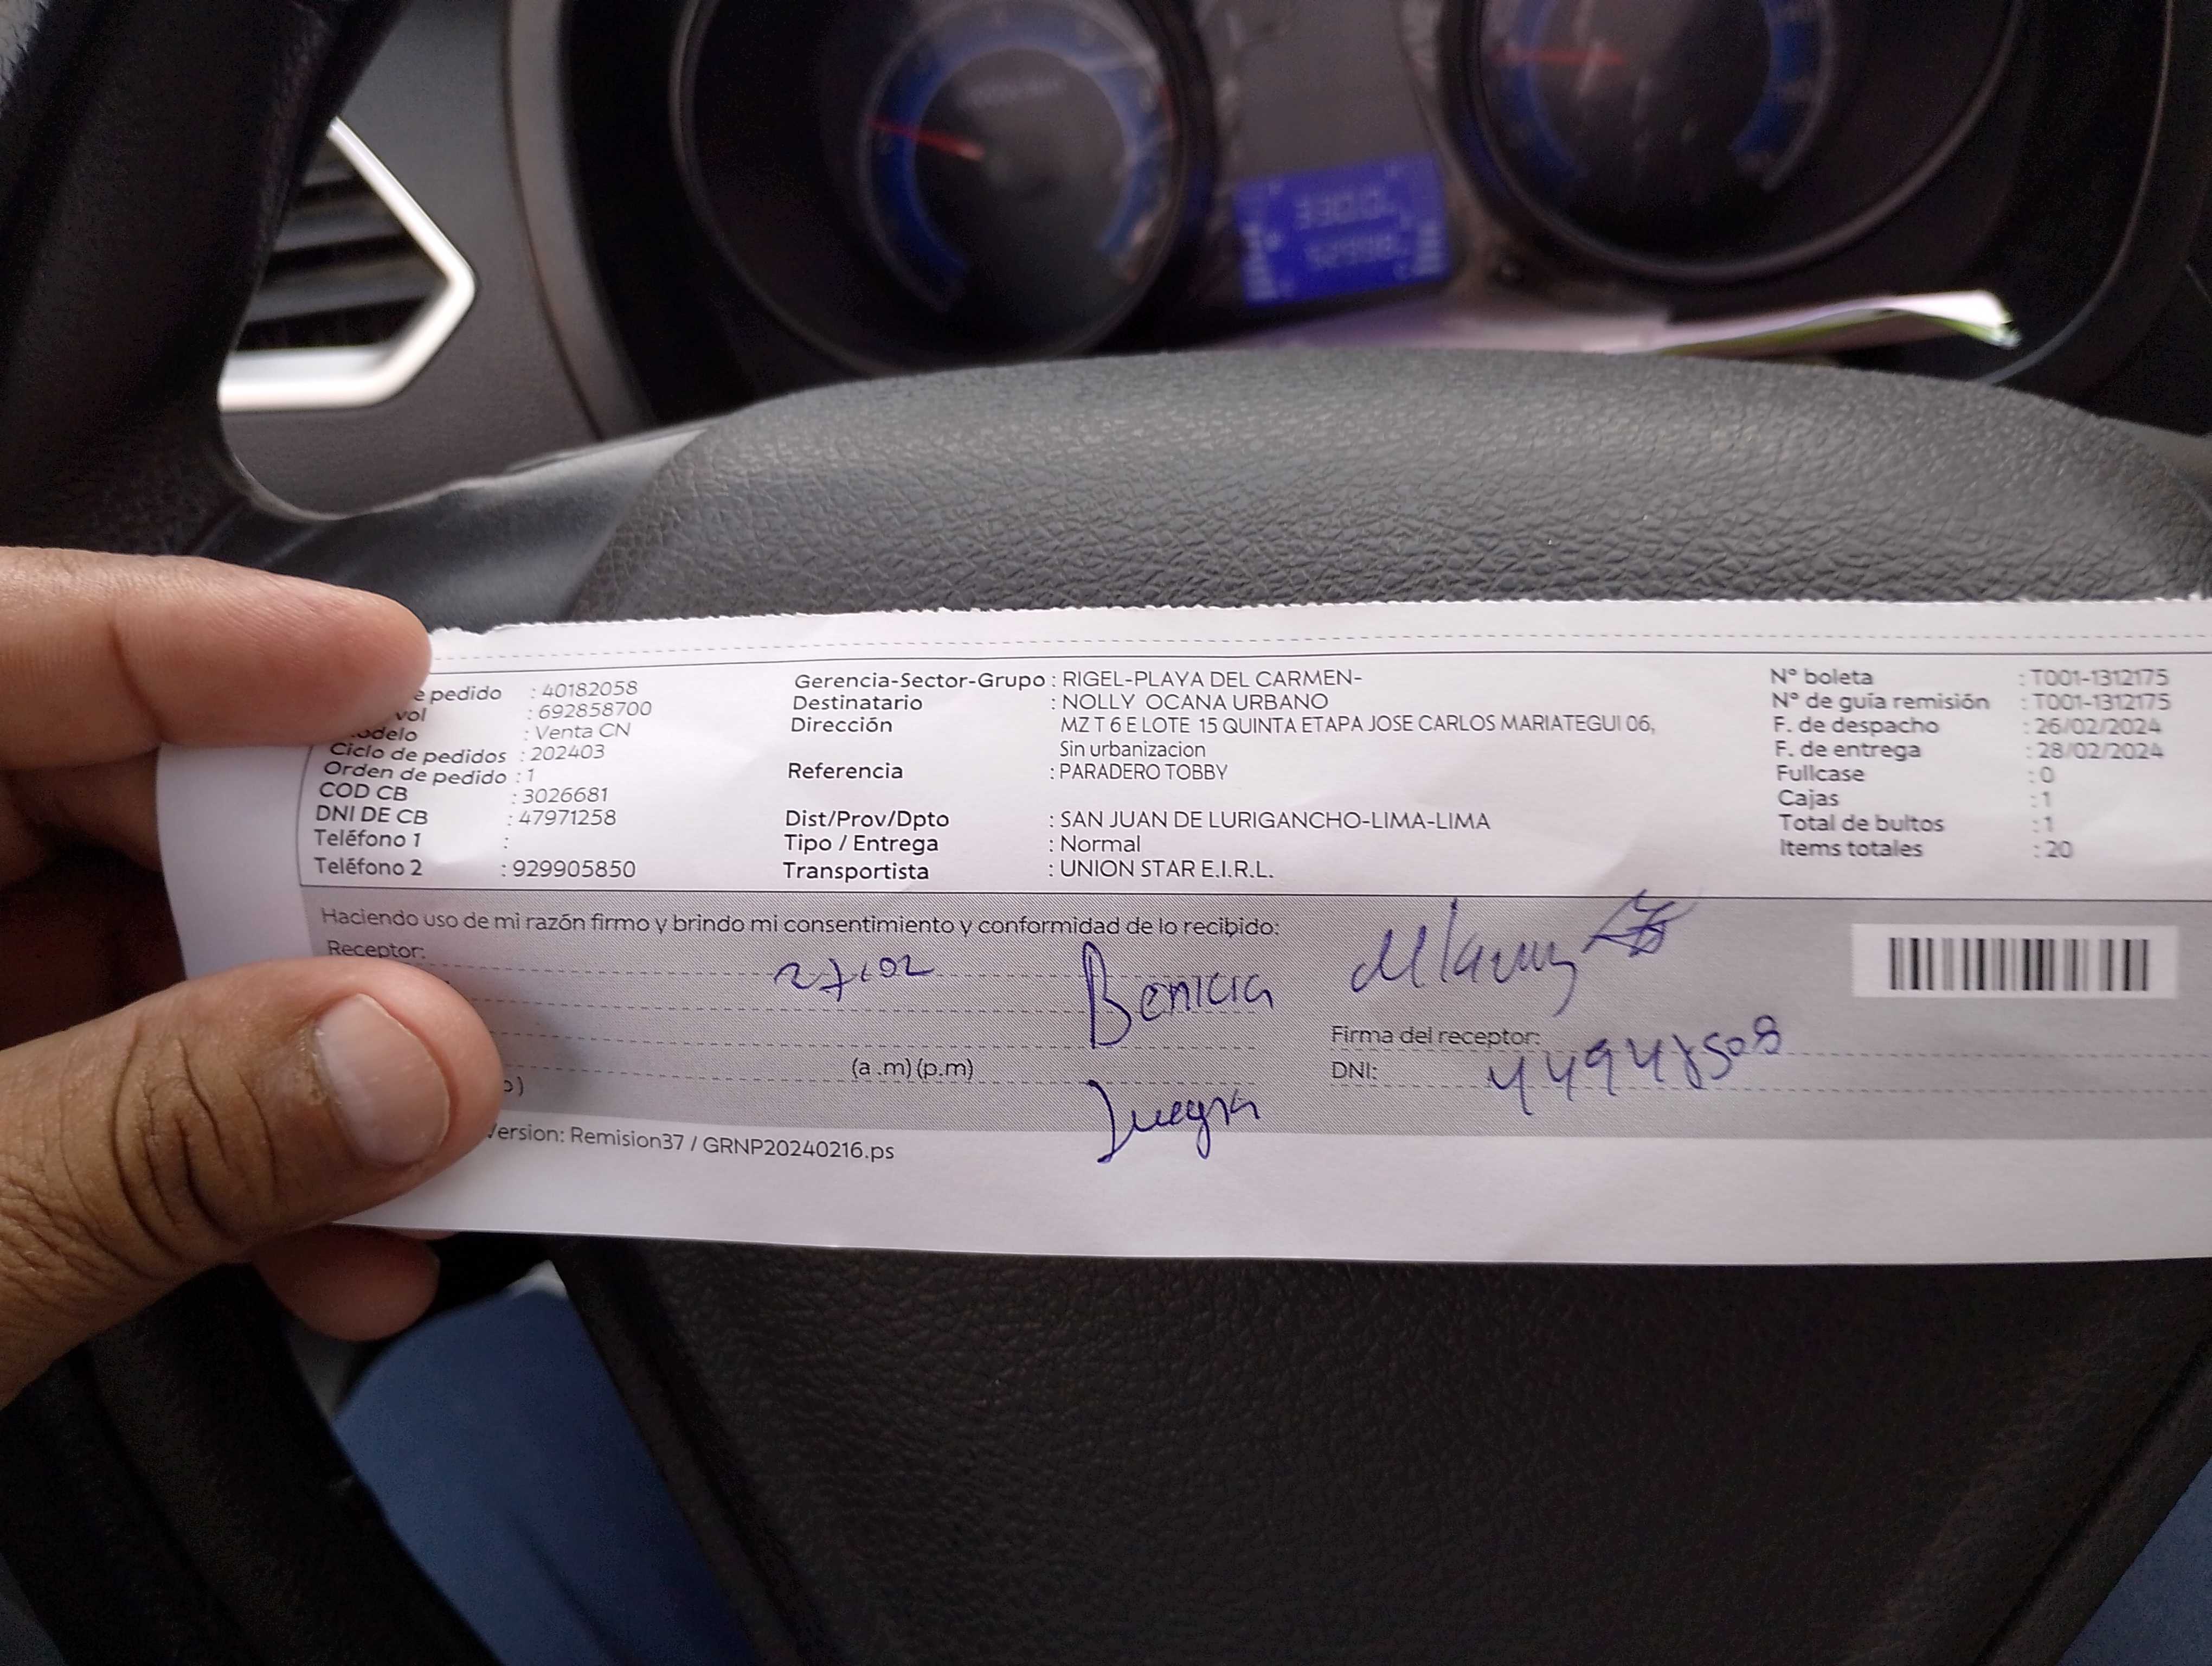 e pedido : 40182058
vol : 692858700
odelo : Venta CN
Ciclo de pedidos : 202403
Orden de pedido : 1
COD CB : 3026681
DNI DE CB : 47971258
Teléfono 1 :
Teléfono 2 : 929905850
Gerencia-Sector-Grupo : RIGEL-PLAYA DEL CARMEN-
Destinatario : NOLLY OCANA URBANO
Dirección MZ T 6 E LOTE 15 QUINTA ETAPA JOSE CARLOS MARIATEGUI 06,
Sin urbanizacion
Referencia : PARADERO TOBBY
Dist/Prov/Dpto : SAN JUAN DE LURIGANCHO-LIMA-LIMA
Tipo / Entrega : Normal
Transportista : UNION STAR E.I.R.L.
N° boleta : T001-1312175
N° de guía remisión : T001-1312175
F. de despacho : 26/02/2024
F. de entrega : 28/02/2024
Fullcase : 0
Cajas : 1
Total de bultos : 1
Items totales : 20
Haciendo uso de mi razón firmo y brindo mi consentimiento y conformidad de lo recibido:
Receptor:
27/02
Benicia
Firma del receptor:
(a .m) (p.m)
DNI: 44948508
o)
Version: Remision37 / GRNP20240216.ps